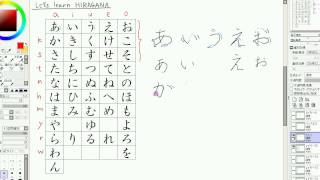 Let's learn HIRAGANA
a i u e o
あ い う え お
k か き く け こ
s さ し す せ そ
t た ち つ て と
n な に ぬ ね の
h は ひ ふ へ ほ
m ま み む め も
y や ゆ よ
r ら り る れ ろ
w わ を
ん
あ い う え お
あ い え お
か